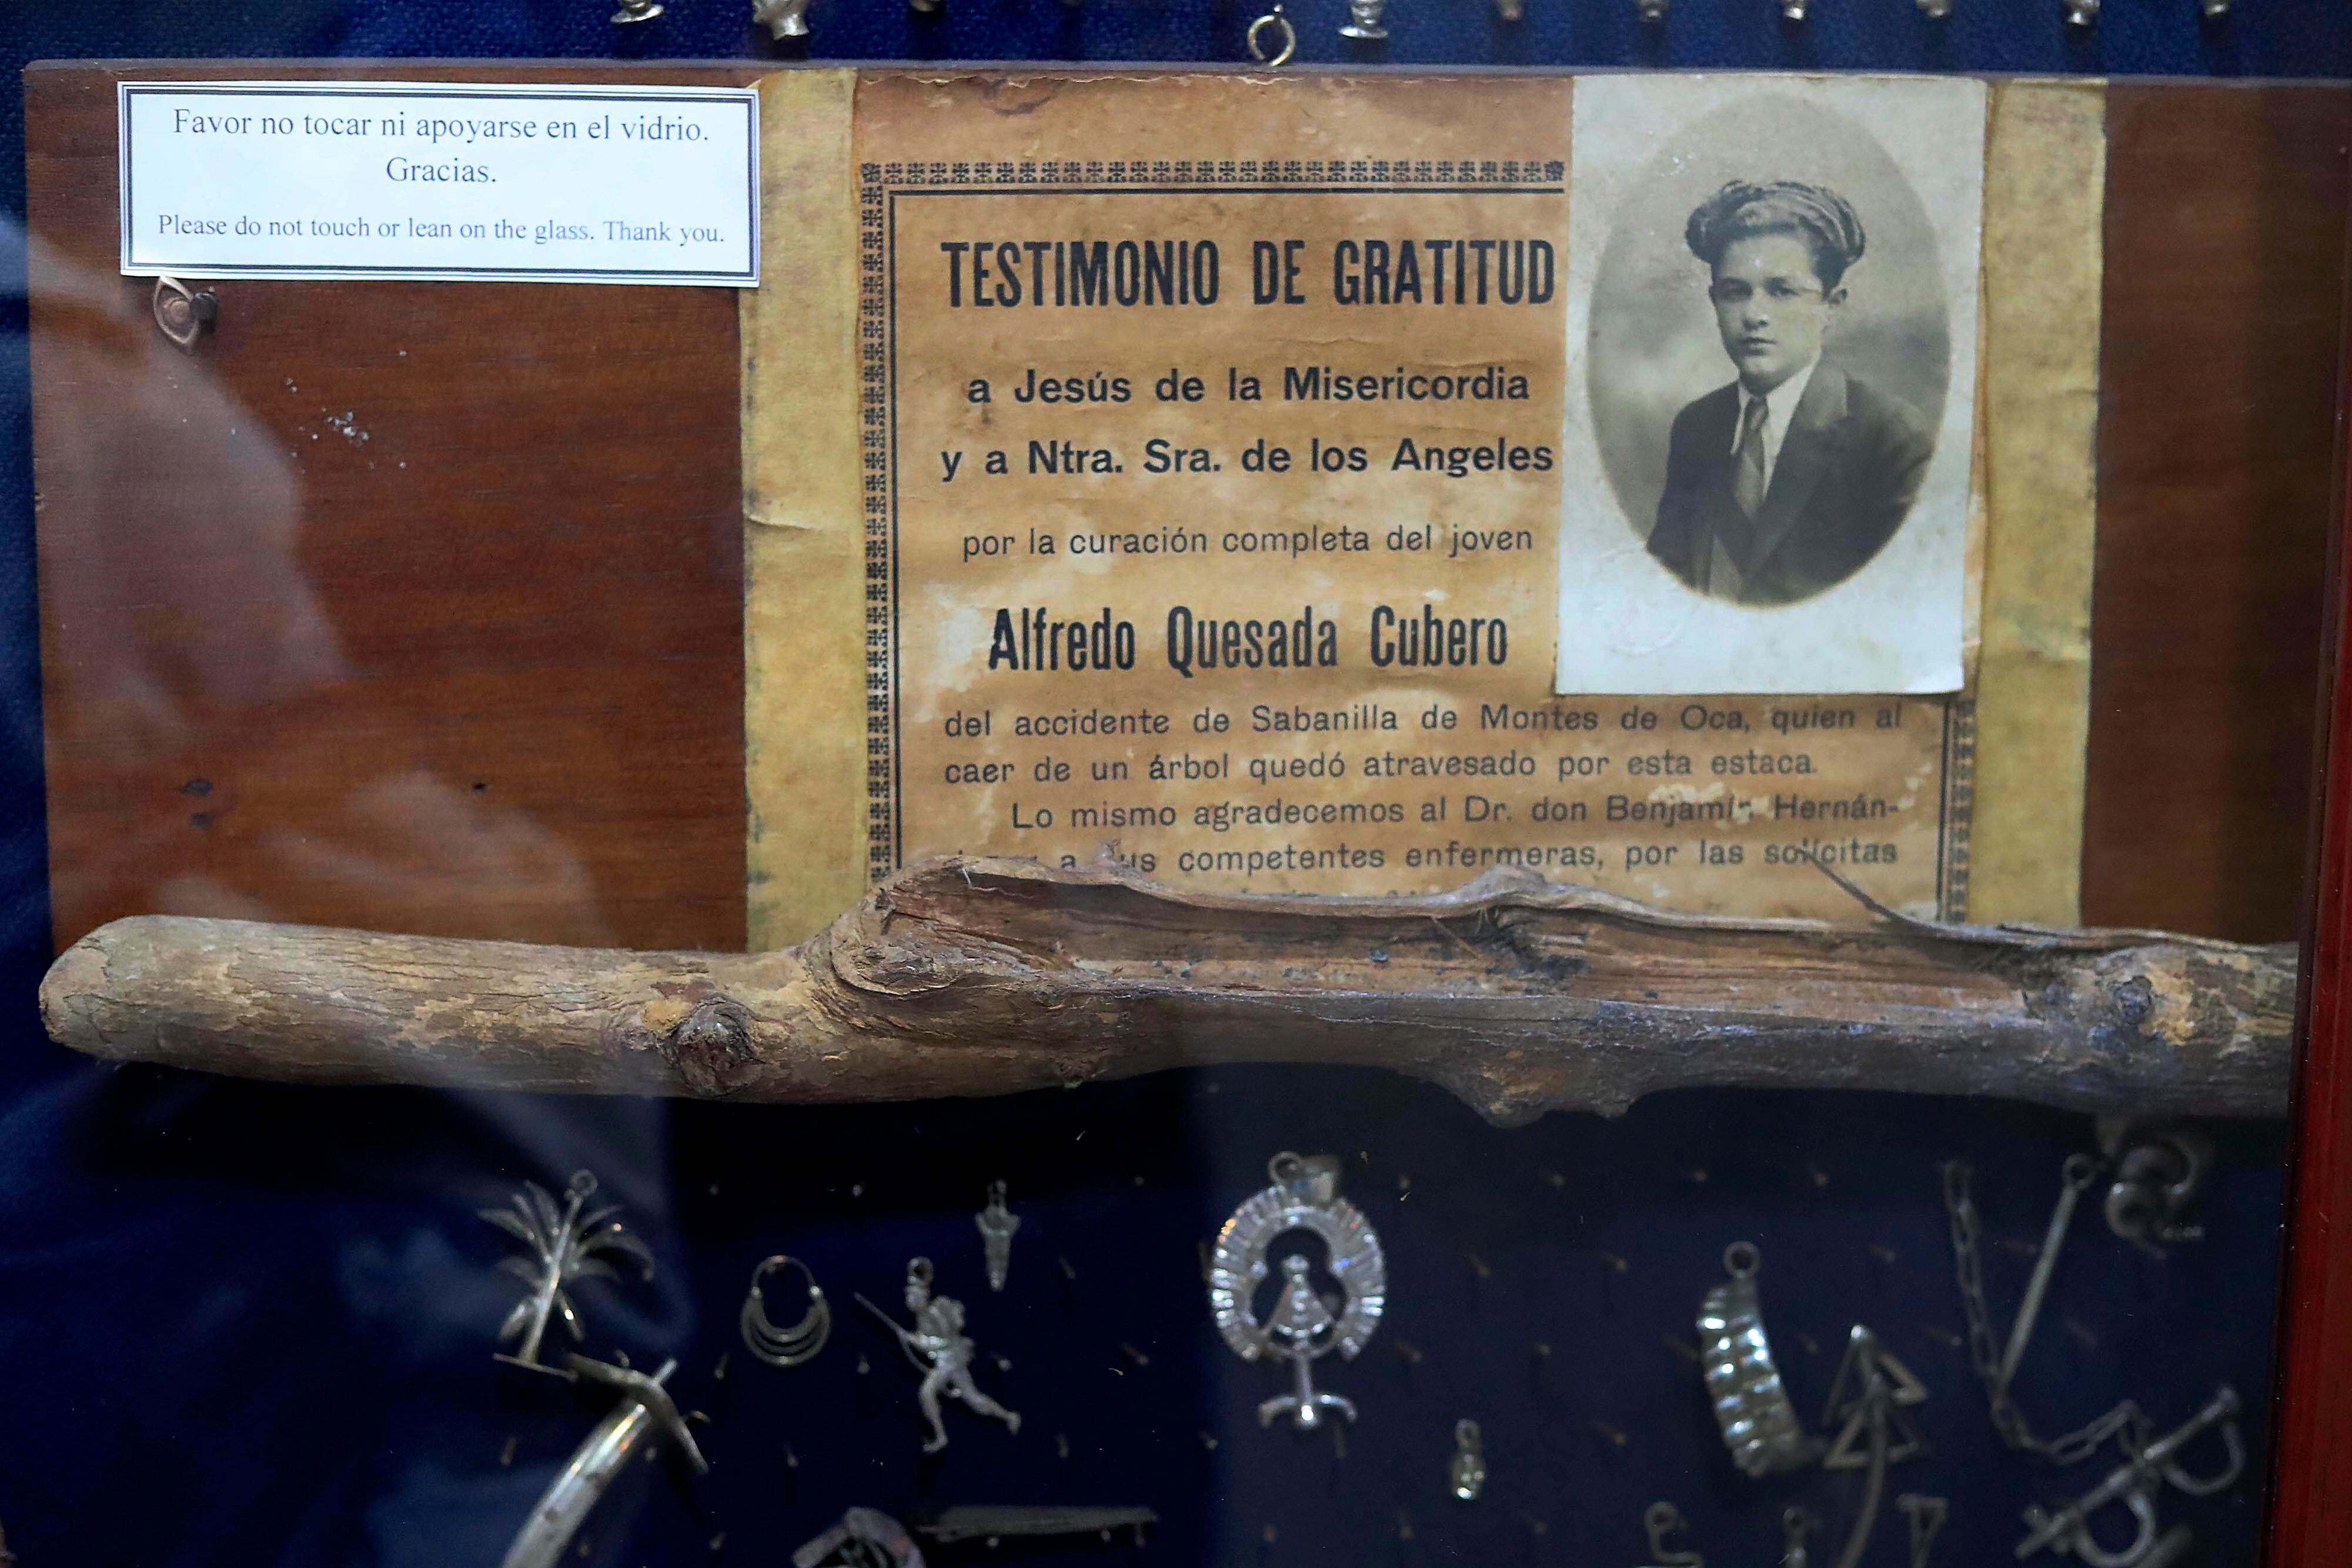 Favor no tocar ni apoyarse en el vidrio.
Gracias.
Please do not touch or lean on the glass. Thank you.
TESTIMONIO DE GRATITUD
a Jesús de la Misericordia
y a Ntra. Sra. de los Angeles
por la curación completa del joven
Alfredo Quesada Cubero
del accidente de Sabanilla de Montes de Oca, quien al
caer de un árbol quedó atravesado por esta estaca.
Lo mismo agradecemos al Dr. don Benjamín Hernán-
a sus competentes enfermeras, por las solícitas